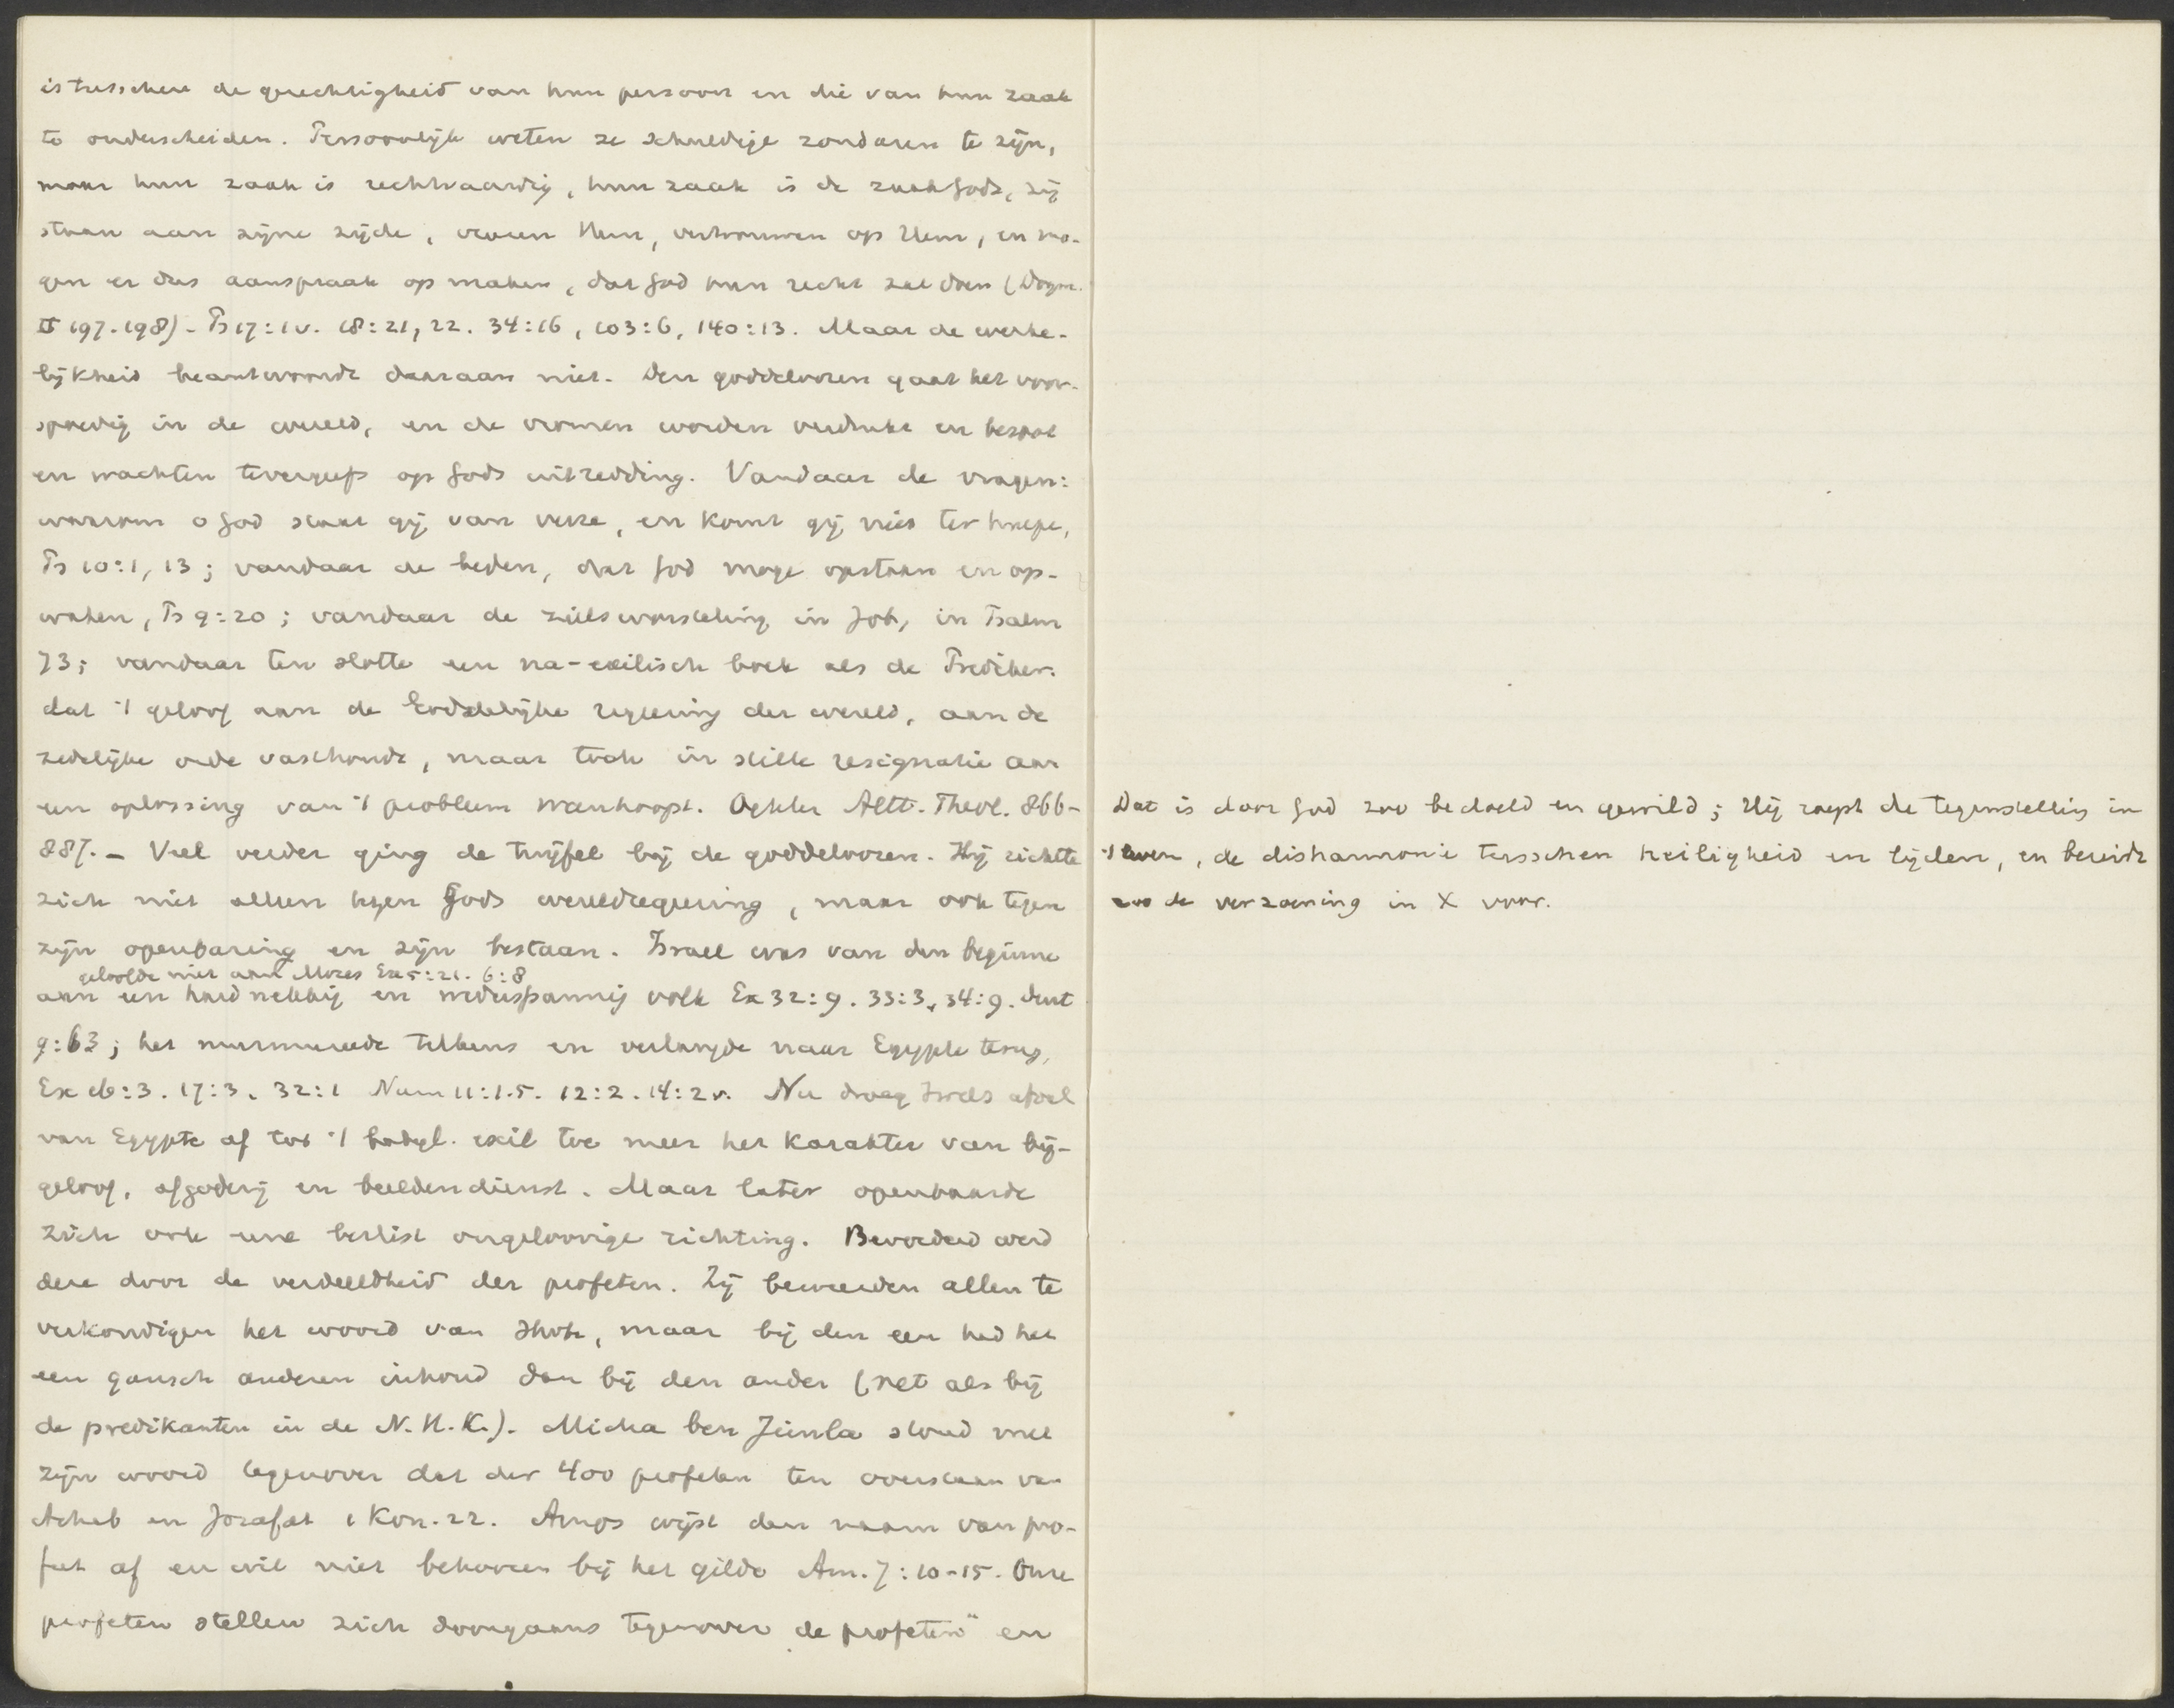 is tusschen de gerechtigheid van hun persoon en die van hun zaak
te onderscheiden. Persoonlijk weten ze schuldige zondaren te zijn,
maar hun zaak is rechtvaardig, hun zaak is de zaak Gods, zij
staan aan zijne zijde, vreezen Hem, vertrouwen op Hem, en mo-
gen er dus aanspraak op maken, dat God hun recht zal doen (Dogm.
II 197. 198) - Ps 17:1v. 18:21, 22. 34:16, 103:6, 140:13. Maar de werke-
lijkheid beantwoordt daaraan niet. Den goddeloozen gaat het voor-
spoedig in de wereld, en de vromen worden verdrukt en
en wachten tevergeefs op Gods uitredding. Vandaar de vragen:
waarom o God staat gij van verre, en komt gij niet ter hulpe,
Ps 10:1, 13; vandaar de beden, dat God moge opstaan en op-
waken, Ps 9:20; vandaar de zielsworsteling in Job, in Psalm
73; vandaar ten slotte een na-exilisch boek als de Prediker.
dat 't geloof aan de Goddelijke regeering der wereld, aan de
zedelijke orde vasthoudt, maar toch in stille resignatie aan
een oplossing van 't probleem wanhoopt. Oehler Altt. Theol. 866-
887. - Veel verder ging de twijfel bij de goddeloozen. Hij richtte
zich niet alleen tegen Gods wereldregeering, maar ook tegen
zijn openbaring en zijn bestaan. Israel was van den beginne
geloofde niet aan Mozes Ex 5:21. 6:8
aan een hardnekkig en wederspannig volk Ex 32:9. 33:3, 34:9. Deut
9:63; het murmureerde telkens en verlangde naar Egypte terug,
Ex 16:3. 17:3. 32:1 Num 11:1.5. 12:2. 14:2v. Nu droeg Isrels afval
van Egypte af tot 't babyl. exil toe meer het karakter van bij-
geloof, afgoderij en beeldendienst. Maar later openbaarde
zich ook eene beslist ongeloovige richting. Bevorderd werd
deze door de verdeeldheid der profeten. Zij beweerden allen te
verkondigen het woord van Jhvh, maar bij den een had het
een gansch anderen inhoud dan bij den ander (net als bij
de predikanten in de N.H.K.). Micha ben Jimla stond met
zijn woord tegenover dat der 400 profeten ten overstaan van
Achab en Josafat 1 Kon. 22. Amos wijst den naam van pro-
feet af en wil niet behooren bij het gilde Am. 7:10-15. Onze
profeten stellen zich doorgaans tegenover „de profeten" en
Dat is door God zoo bedoeld en gewild; Hij roept de tegenstelling in
't leven, de disharmonie tusschen heiligheid en lijden, en bereidt
zoo de verzoening in X voor.